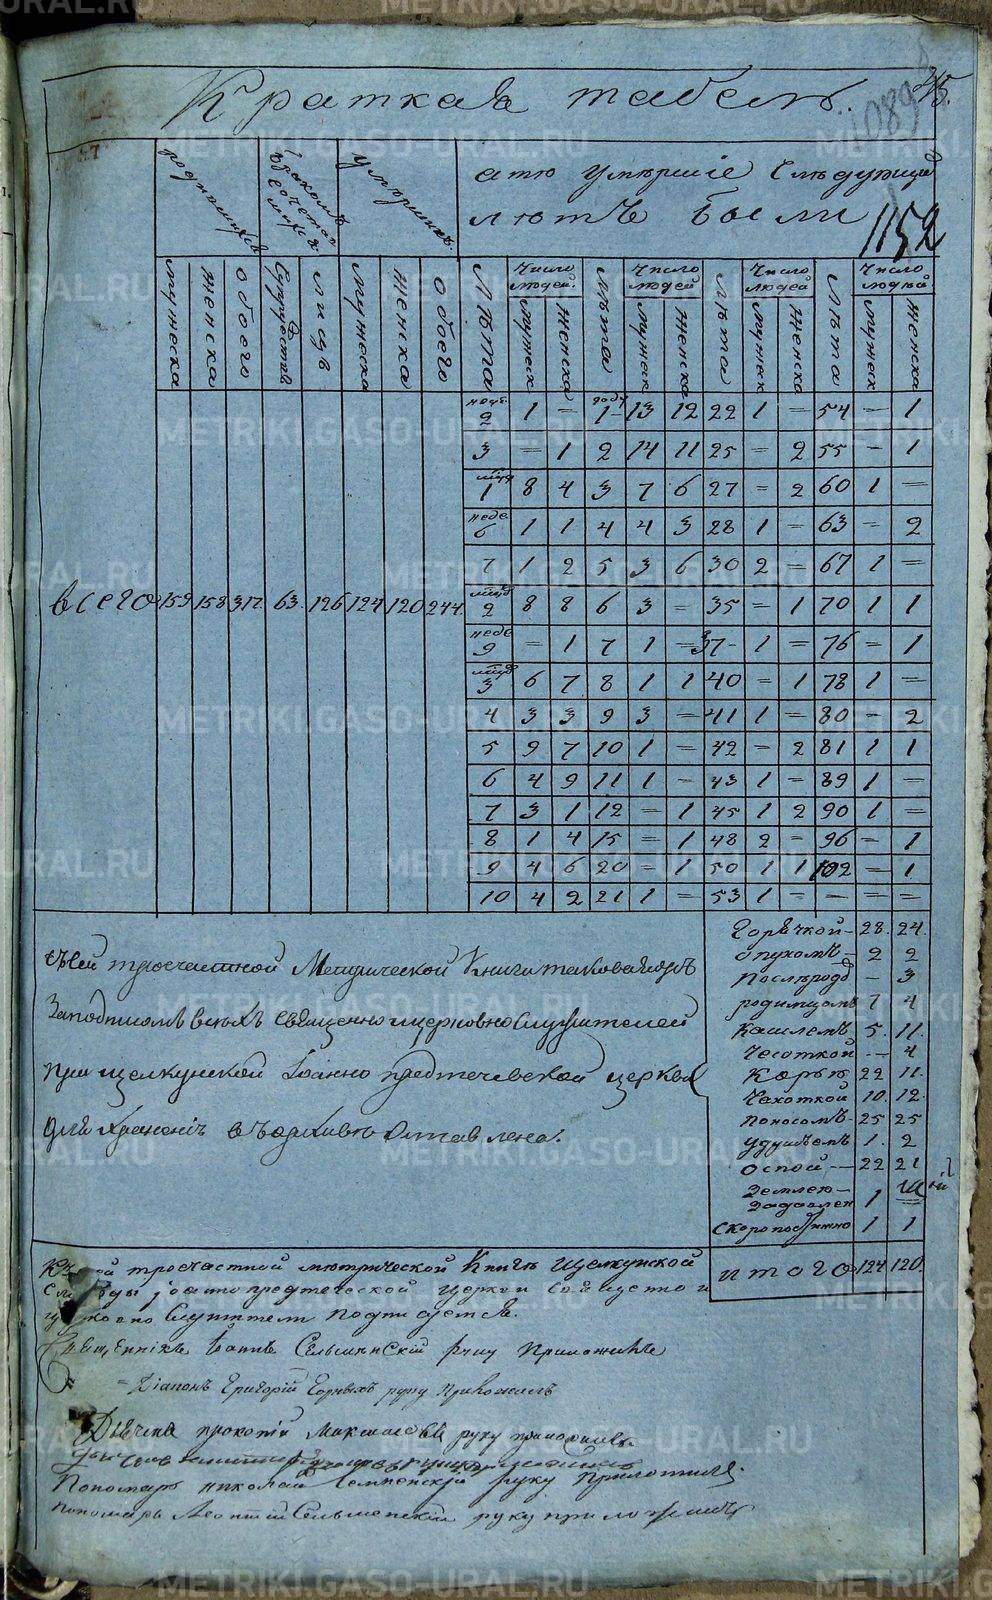 Краткая табель.
45.
1089
1152
родившихся
бракомъ сочетавшихся
умершихъ.
а тѣ умершіе слѣдующихъ
лѣтъ были
мужеска женска обоего супружествъ лицъ мужеска женска обоего
Лѣта Число людей. мужеск женска Лѣта Число людей мужеск женска Лѣта Число людей мужеск женска Лѣта Число людей мужеск женска
неде. 2 1 = году 1 13 12 22 1 = 54 = 1
3 = 1 2 14 11 25 = 2 55 - 1
мцъ 1 8 4 3 7 6 27 = 2 60 1 =
неде 6 1 1 4 4 3 28 1 = 63 = 2
7 1 2 5 3 6 30 2 = 67 1 =
всего 159 158 317. 63. 126 124 120 244.
мцъ 2 8 8 6 3 = 35 = 1 70 1 1
неде 9 = 1 7 1 = 37 1 = 76 = 1
мцъ 3 6 7 8 1 1 40 = 1 78 1 =
4 3 3 9 3 = 41 1 = 80 - 2
5 9 7 10 1 = 42 = 2 81 1 1
6 4 9 11 1 = 43 1 = 89 1 =
7 3 1 12 = 1 45 1 2 90 1 =
8 1 4 15 = 1 48 2 = 96 = 1
9 4 6 20 = 1 50 1 1 102 = 1
10 4 2 21 1 = 53 1 = = = =
Горячкой 28. 24.
Опухомъ 2 2
Послѣрод - 3
родимцомъ 7 4
Кашлемъ 5. 11.
Чесоткой - 4
Корью 22 11.
Чахоткой 10. 12.
Поносомъ 25 25
Удушьемъ 1. 2
Оспой 22 21
Землею задавлен 1
Скоропостижно 1 1
итого 124 120.
съ сей троечастной Метрической Книги таковаяжъ
Заподписомъ всѣхъ священно и церковно служителей
при щелкунской Іоанно предтечевской церкви
для храненія въ архивѣ оставлена.
Къ сей троечастной метрической Книгѣ Щелкунской
слободы іоаннопредтеческой церкви священно и
церковно служители подписуемся.
Священникъ Сельменскій руку приложилъ
Діаконъ Григорій Горныхъ руку приложилъ
Дьячекъ прокопій Максимовъ руку приложилъ.
Пономарь николай Селменскій руку приложилъ.
пономарь Леонтій Сельменскій руку приложилъ
METRIKI.GASO-URAL.RU